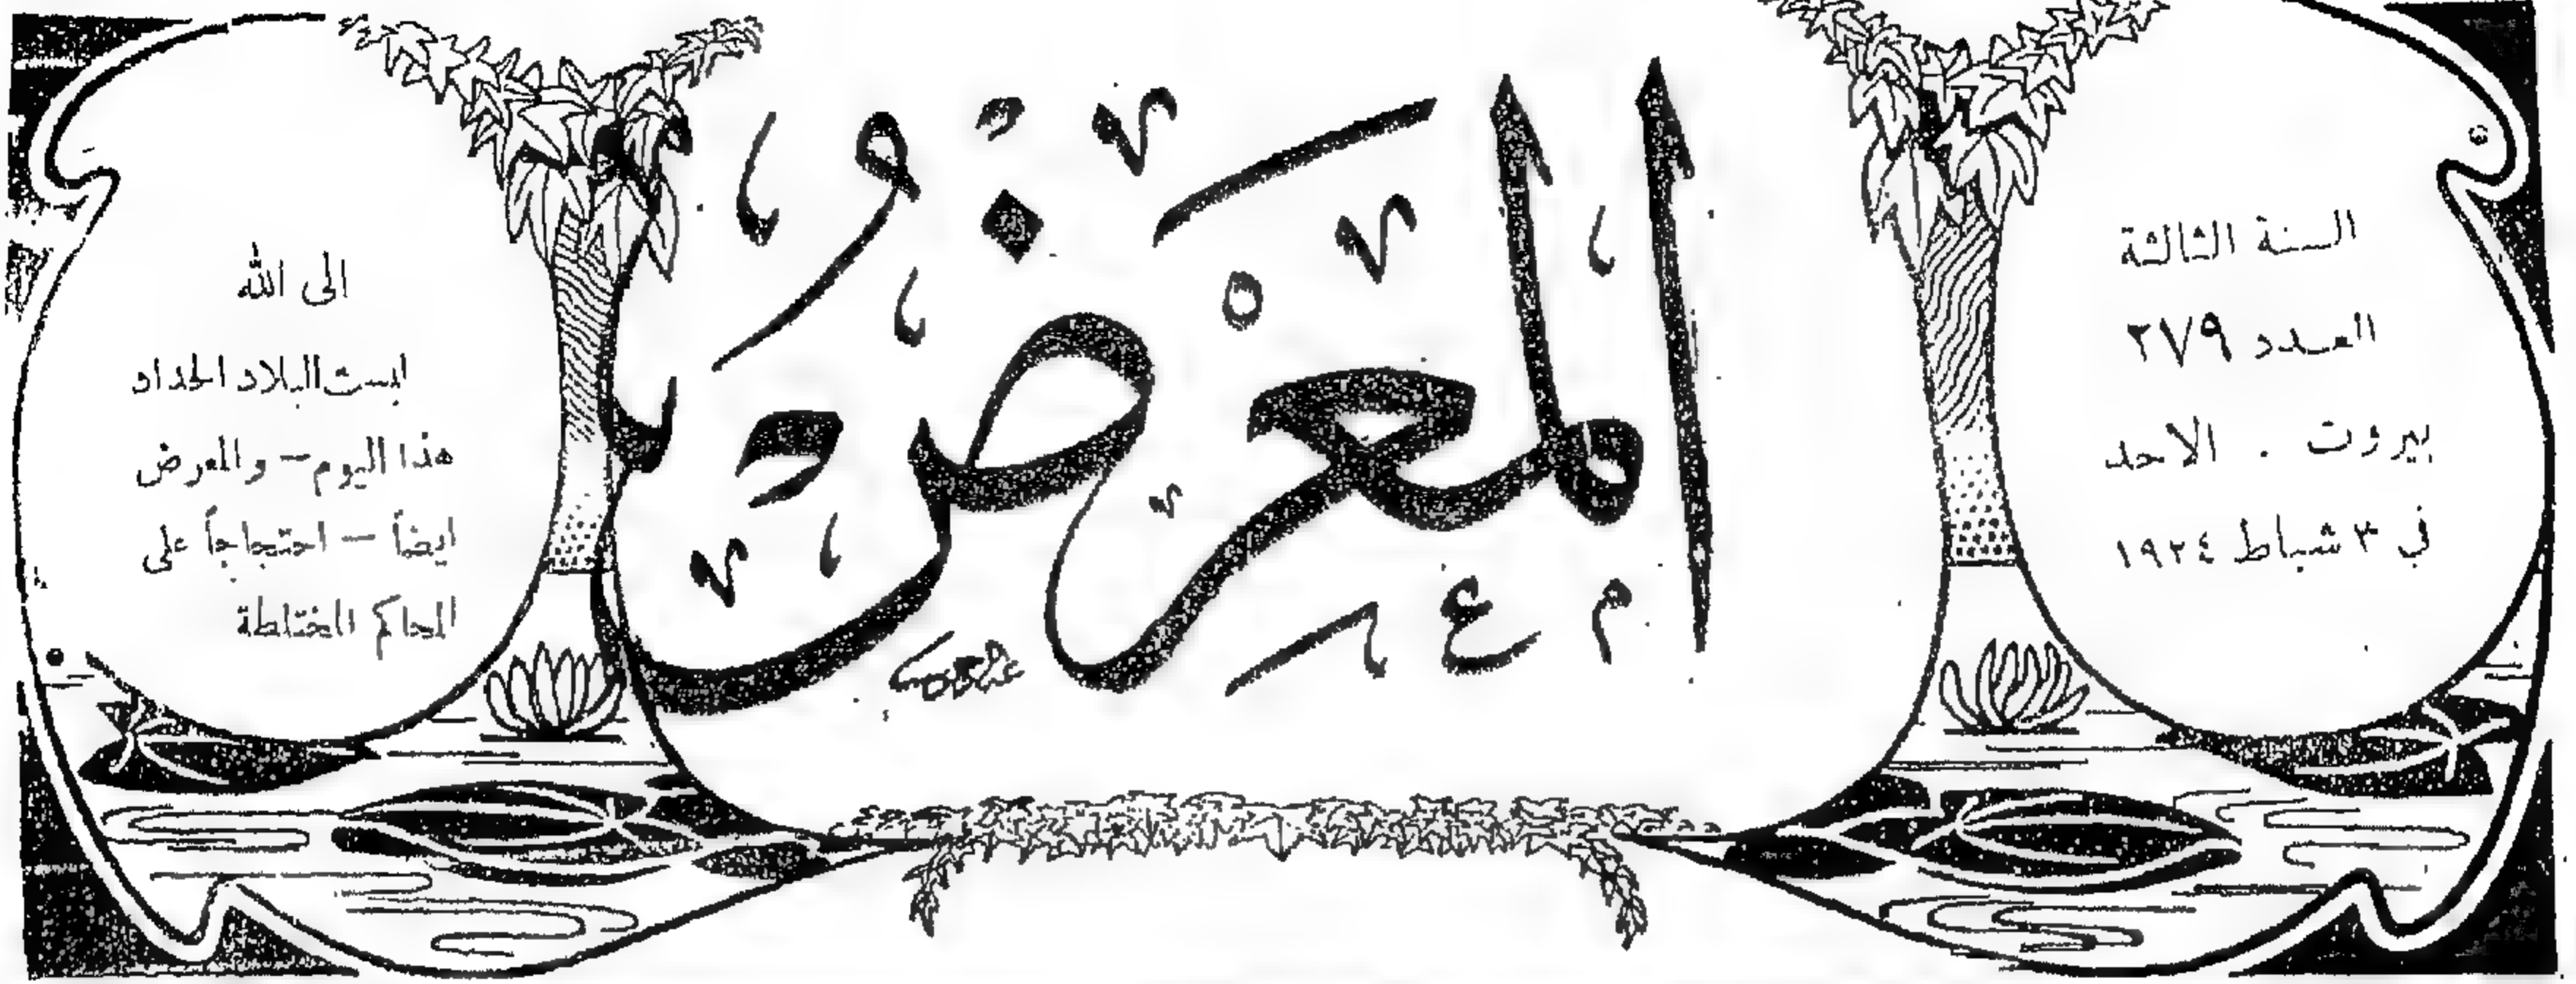 السنة الثالثة
العدد ٢٧٩
بيروت . الاحد
في ٣ شباط ١٩٢٤
المعرض
الى الله
لبست البلاد الحداد
هذا اليوم – والمعرض
ايضاً – احتجاجاً على
المحاكم المختلطة